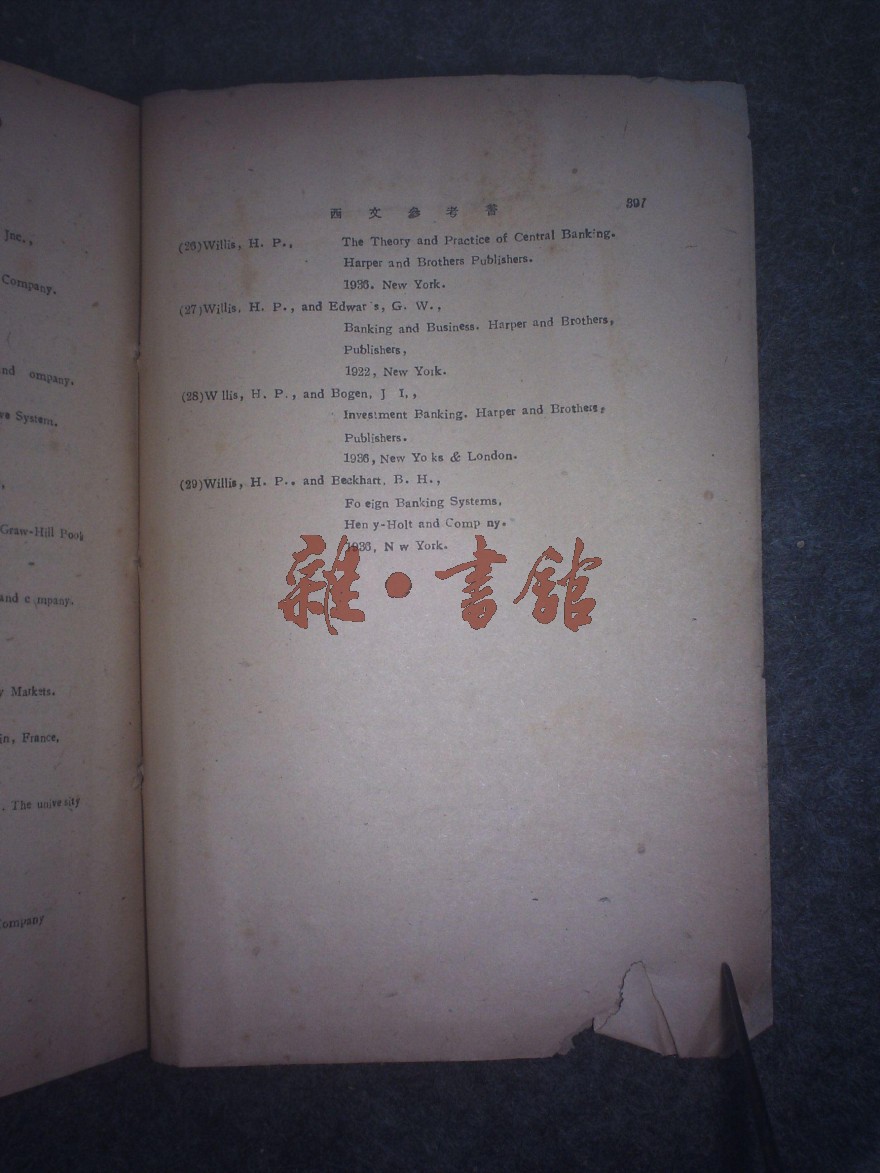 Inc.,
Company.
nd ompany.
ve System.
Graw-Hill Pook
and c mpany.
y Markets.
in, France.
. The university
Company
西文參考書 397
(26)Willis, H. P., The Theory and Practice of Central Banking.
Harper and Brothers Publishers.
1936. New York.
(27)Willis, H. P., and Edwar s, G. W.,
Banking and Business. Harper and Brothers,
Publishers,
1922, New York.
(28)W llis, H. P., and Bogen, J I.,
Investment Banking. Harper and Brothers,
Publishers.
1936, New Yo ks & London.
(29)Willis, H. P.. and Beckhart, B. H.,
Fo eign Banking Systems,
Hen y-Holt and Comp ny.
1936, N w York.
雜·書館